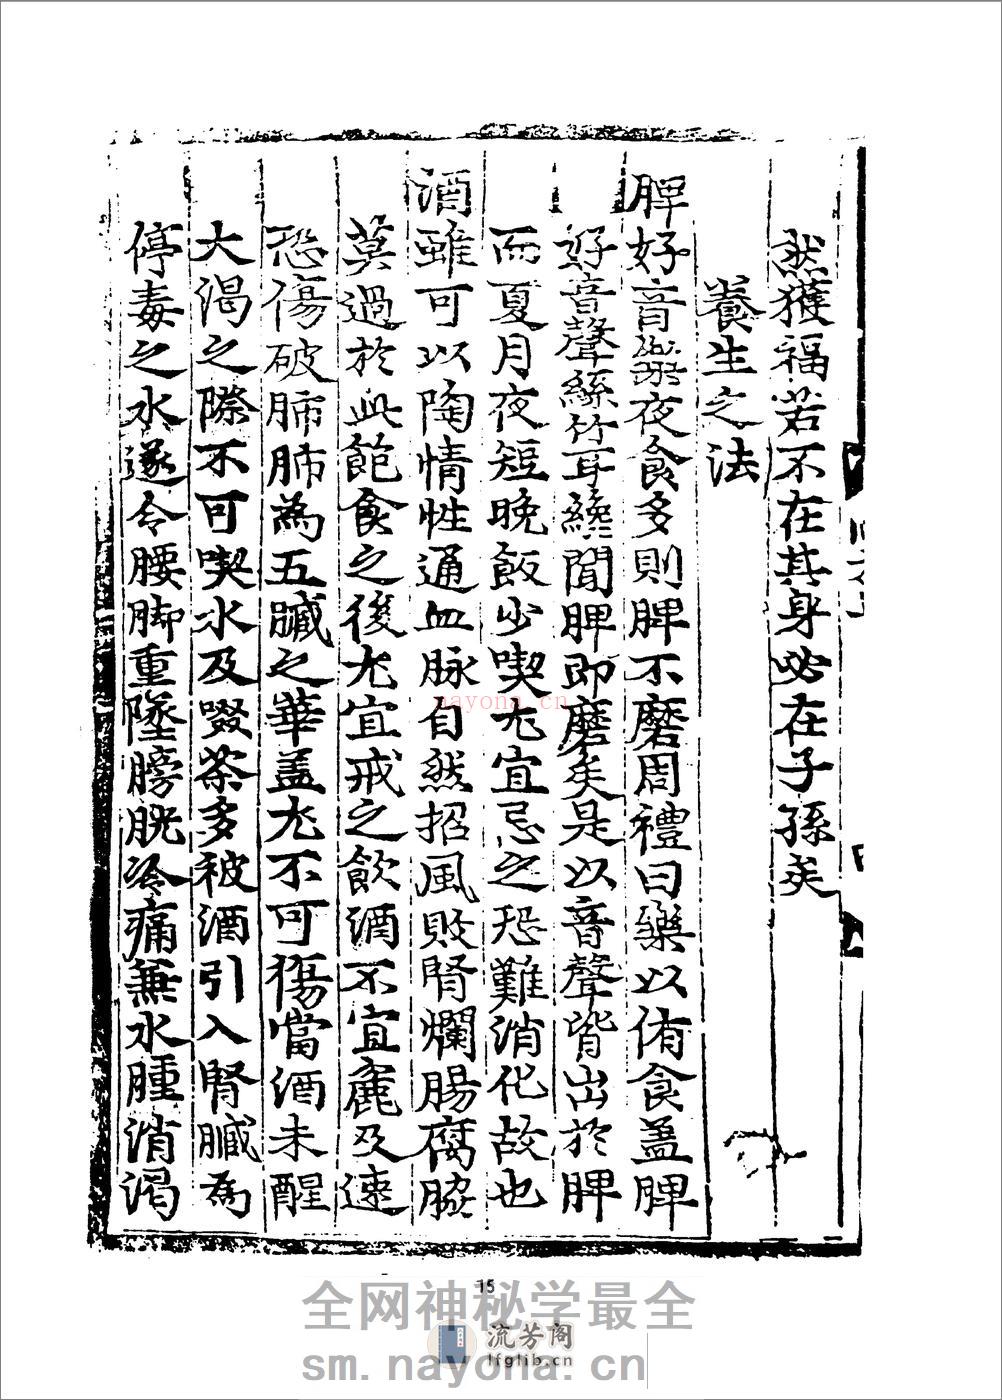 然獲福若不在其身必在子孫矣
養生之法
脾好音樂夜食多則脾不磨周禮曰樂以侑食盖脾
好音聲絲竹耳纔聞脾即磨矣是以音聲皆出於脾
而夏月夜短晚飯少喫尤宜忌之恐難消化故也
酒雖可以陶情性通血脉自然招風敗腎爛腸腐脇
莫過於此飽食之後尤宜戒之飲酒不宜麁及速
恐傷破肺肺為五臟之華盖尤不可傷當酒未醒
大渴之際不可喫水及啜茶多被酒引入腎臟為
停毒之水遂令腰脚重墜膀胱冷痛兼水腫消渴
nayona.cn
15
全网神秘学最全
流芳阁
lfglib.cn
sm.nayona.cn